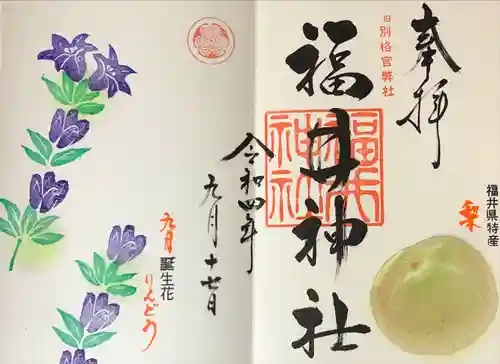 奉拝
旧別格官幣社
福井神社
福井神社
福井県特産
梨
令和四年
九月十七日
九月
誕生花
りんどう